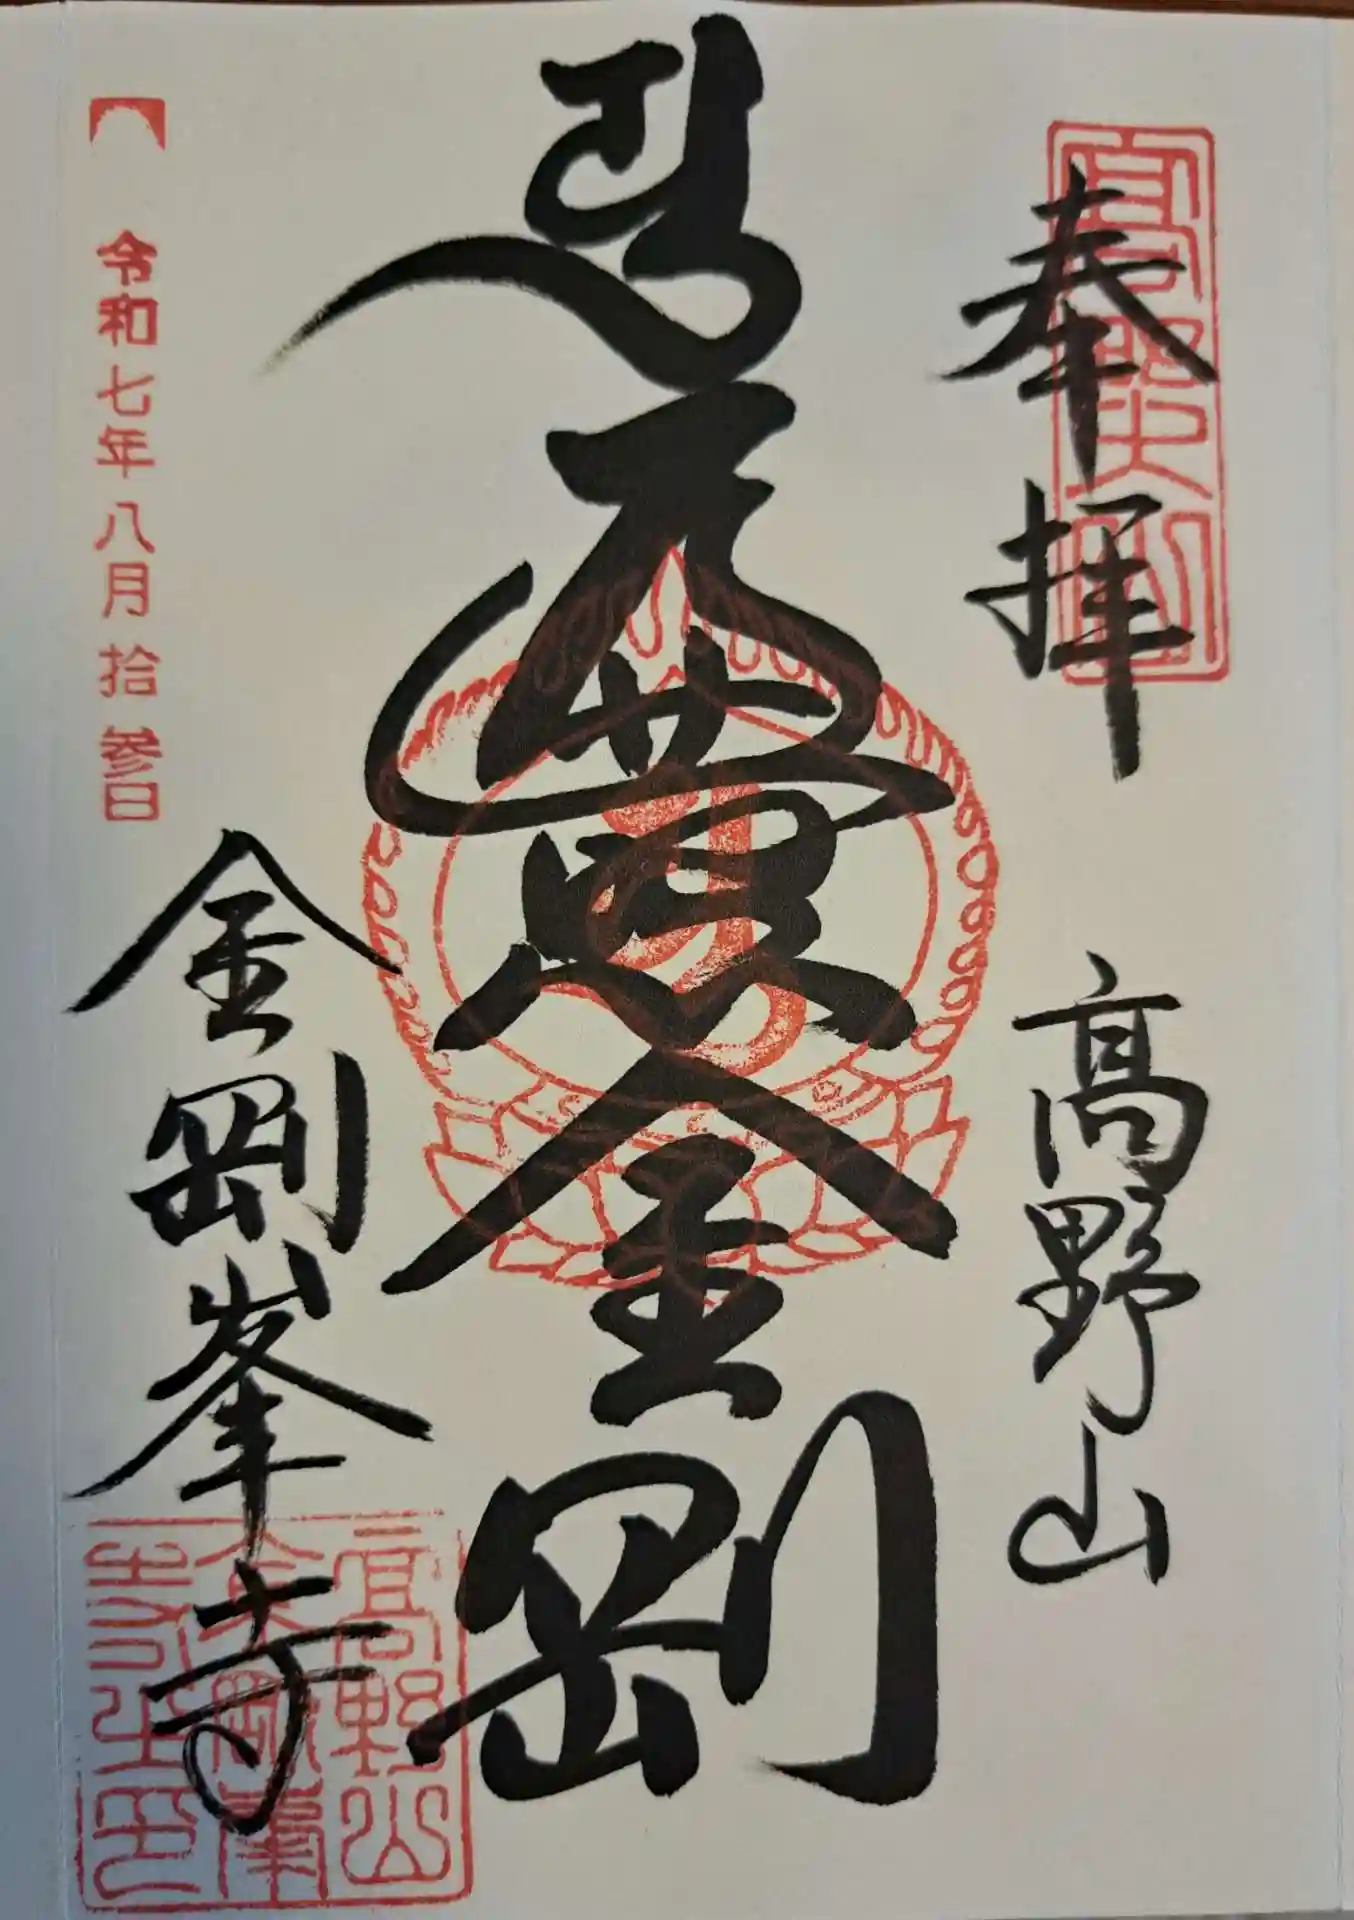 奉拝 高野山
遍照金剛
令和七年八月拾参日
金剛峯寺
高野山
金剛峯
寺之印